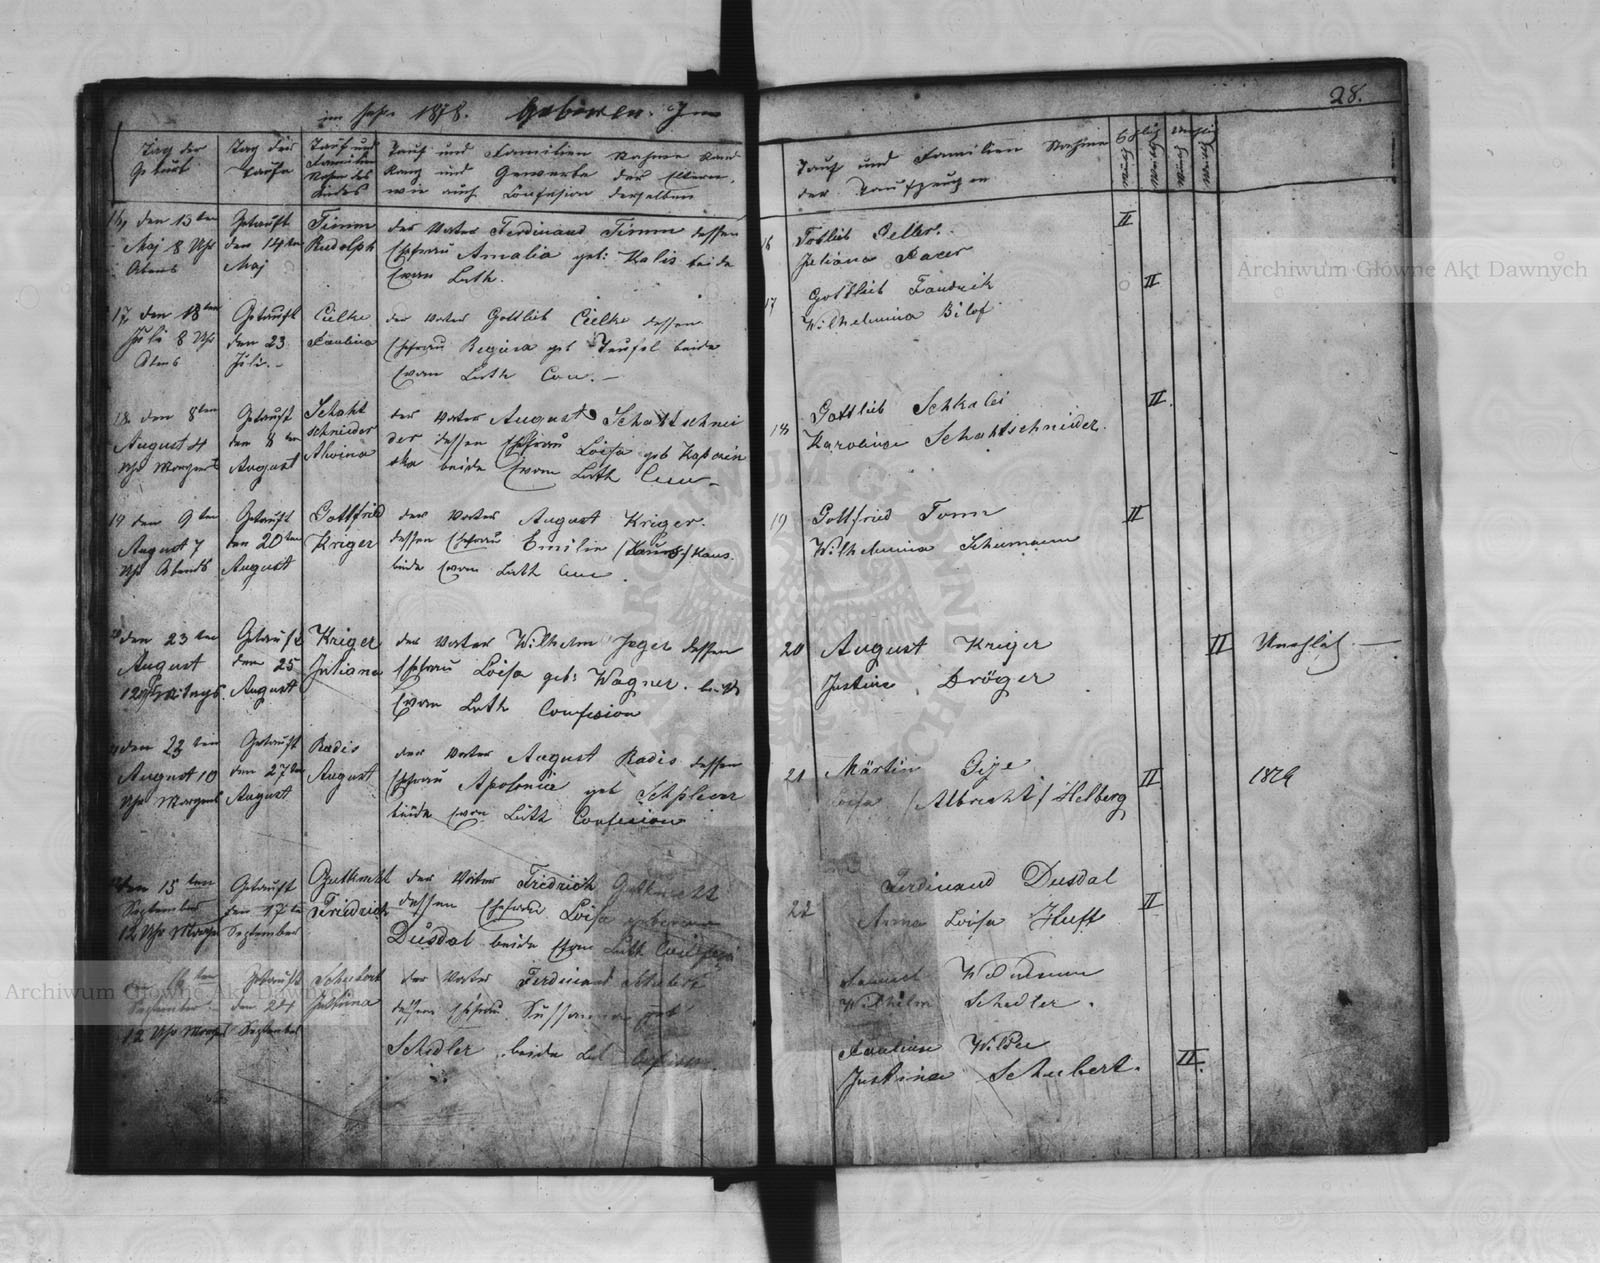 im Jahr 1878. Geboren. Im
28.
Tag der Geburt
Tag der Taufe
Tauf und Familien Nahme des Kindes
Tauf und Familien Nahme Stand
Rang und Gewerbe der Eltern,
wie auch Confession derselben
Tauf und Familien Nahme
der Taufzeugen
16, den 13ten
Maj 8 Uhr
Abens
Getauft
den 14ten
Maj
Timm
Rudolph
der Vater Ferdinand Timm dessen
Ehefrau Amalia geb: Kalis beide
Evan Luth.
16
Juliana
II
17, den 18ten
Juli 8 Uhr
Abens
Getauft
den 23
Juli.
Cielke
Paulina
der Vater Gottlieb Cielke dessen
Ehefrau Regina geb Teufel beide
Evan Luth Con.
17
Gottlieb Faudrik
Wilhelmina Bilof
II
18 den 8ten
August 4
Uhr Morgens
Getauft
den 8ten
August
Schatt
schneider
Alwina
der Vater August Schattschnei
der dessen Ehefrau Loisa geb Kaparin
ska beide Evan Luth Con
18
Gottlieb Schkalei
Karoline Schattschneider.
II.
19 den 9ten
August 7
Uhr Abends
Getauft
den 20ten
August
Gottfried
Kriger
der Vater August Kriger.
dessen Ehefrau Emilie /Kaus/ Kaus.
beide Evan Luth Con.
19
Gottfried Tonn
Wilhelmina Schumann
II
20 den 23ten
August
12 Uhr Mitags
Getauft
den 25
August
Kriger
Juliana
der Vater Wilhelm Jeger dessen
Ehefrau Loisa geb: Wagner. beide
Evan Luth Confesion
20
August Kriger
Justine Dröger
II
Unehlich.
21 den 23ten
August 10
Uhr Morgens
Getauft
den 27ten
August
Radis
August
der Vater August Radis dessen
Ehefrau Apolonia geb Schplewer
beide Evan Luth Confesion
21
Märtin Gije
Loisa /Albrecht/ Helberg
II
1879
den 15ten
September
12 Uhr Morgens
Getauft
den 17ten
September
Gutknecht
Friedrich
der Vater Fredrich Gutknecht
dessen Ehefrau Loisa geboren
Dusdal beide Evan Luth Confesi
22
Ferdinand Dusdal
Anna Loisa Huft
II
16ten
September
12 Uhr Morgens
Getauft
den 24
September
Schubert
Justina
der Vater Ferdinand Schubert
dessen Ehefrau Sussanna geb
Schedler beide Lut Confesion
Samuel Widman
Wilhelm Schedler.
Pauline Wilde
Justina Schubert.
II.
Archiwum Główne Akt Dawnych
Archiwum Główne Akt Dawnych
ARCHIWUM GŁÓWNE AKT DAWNYCH